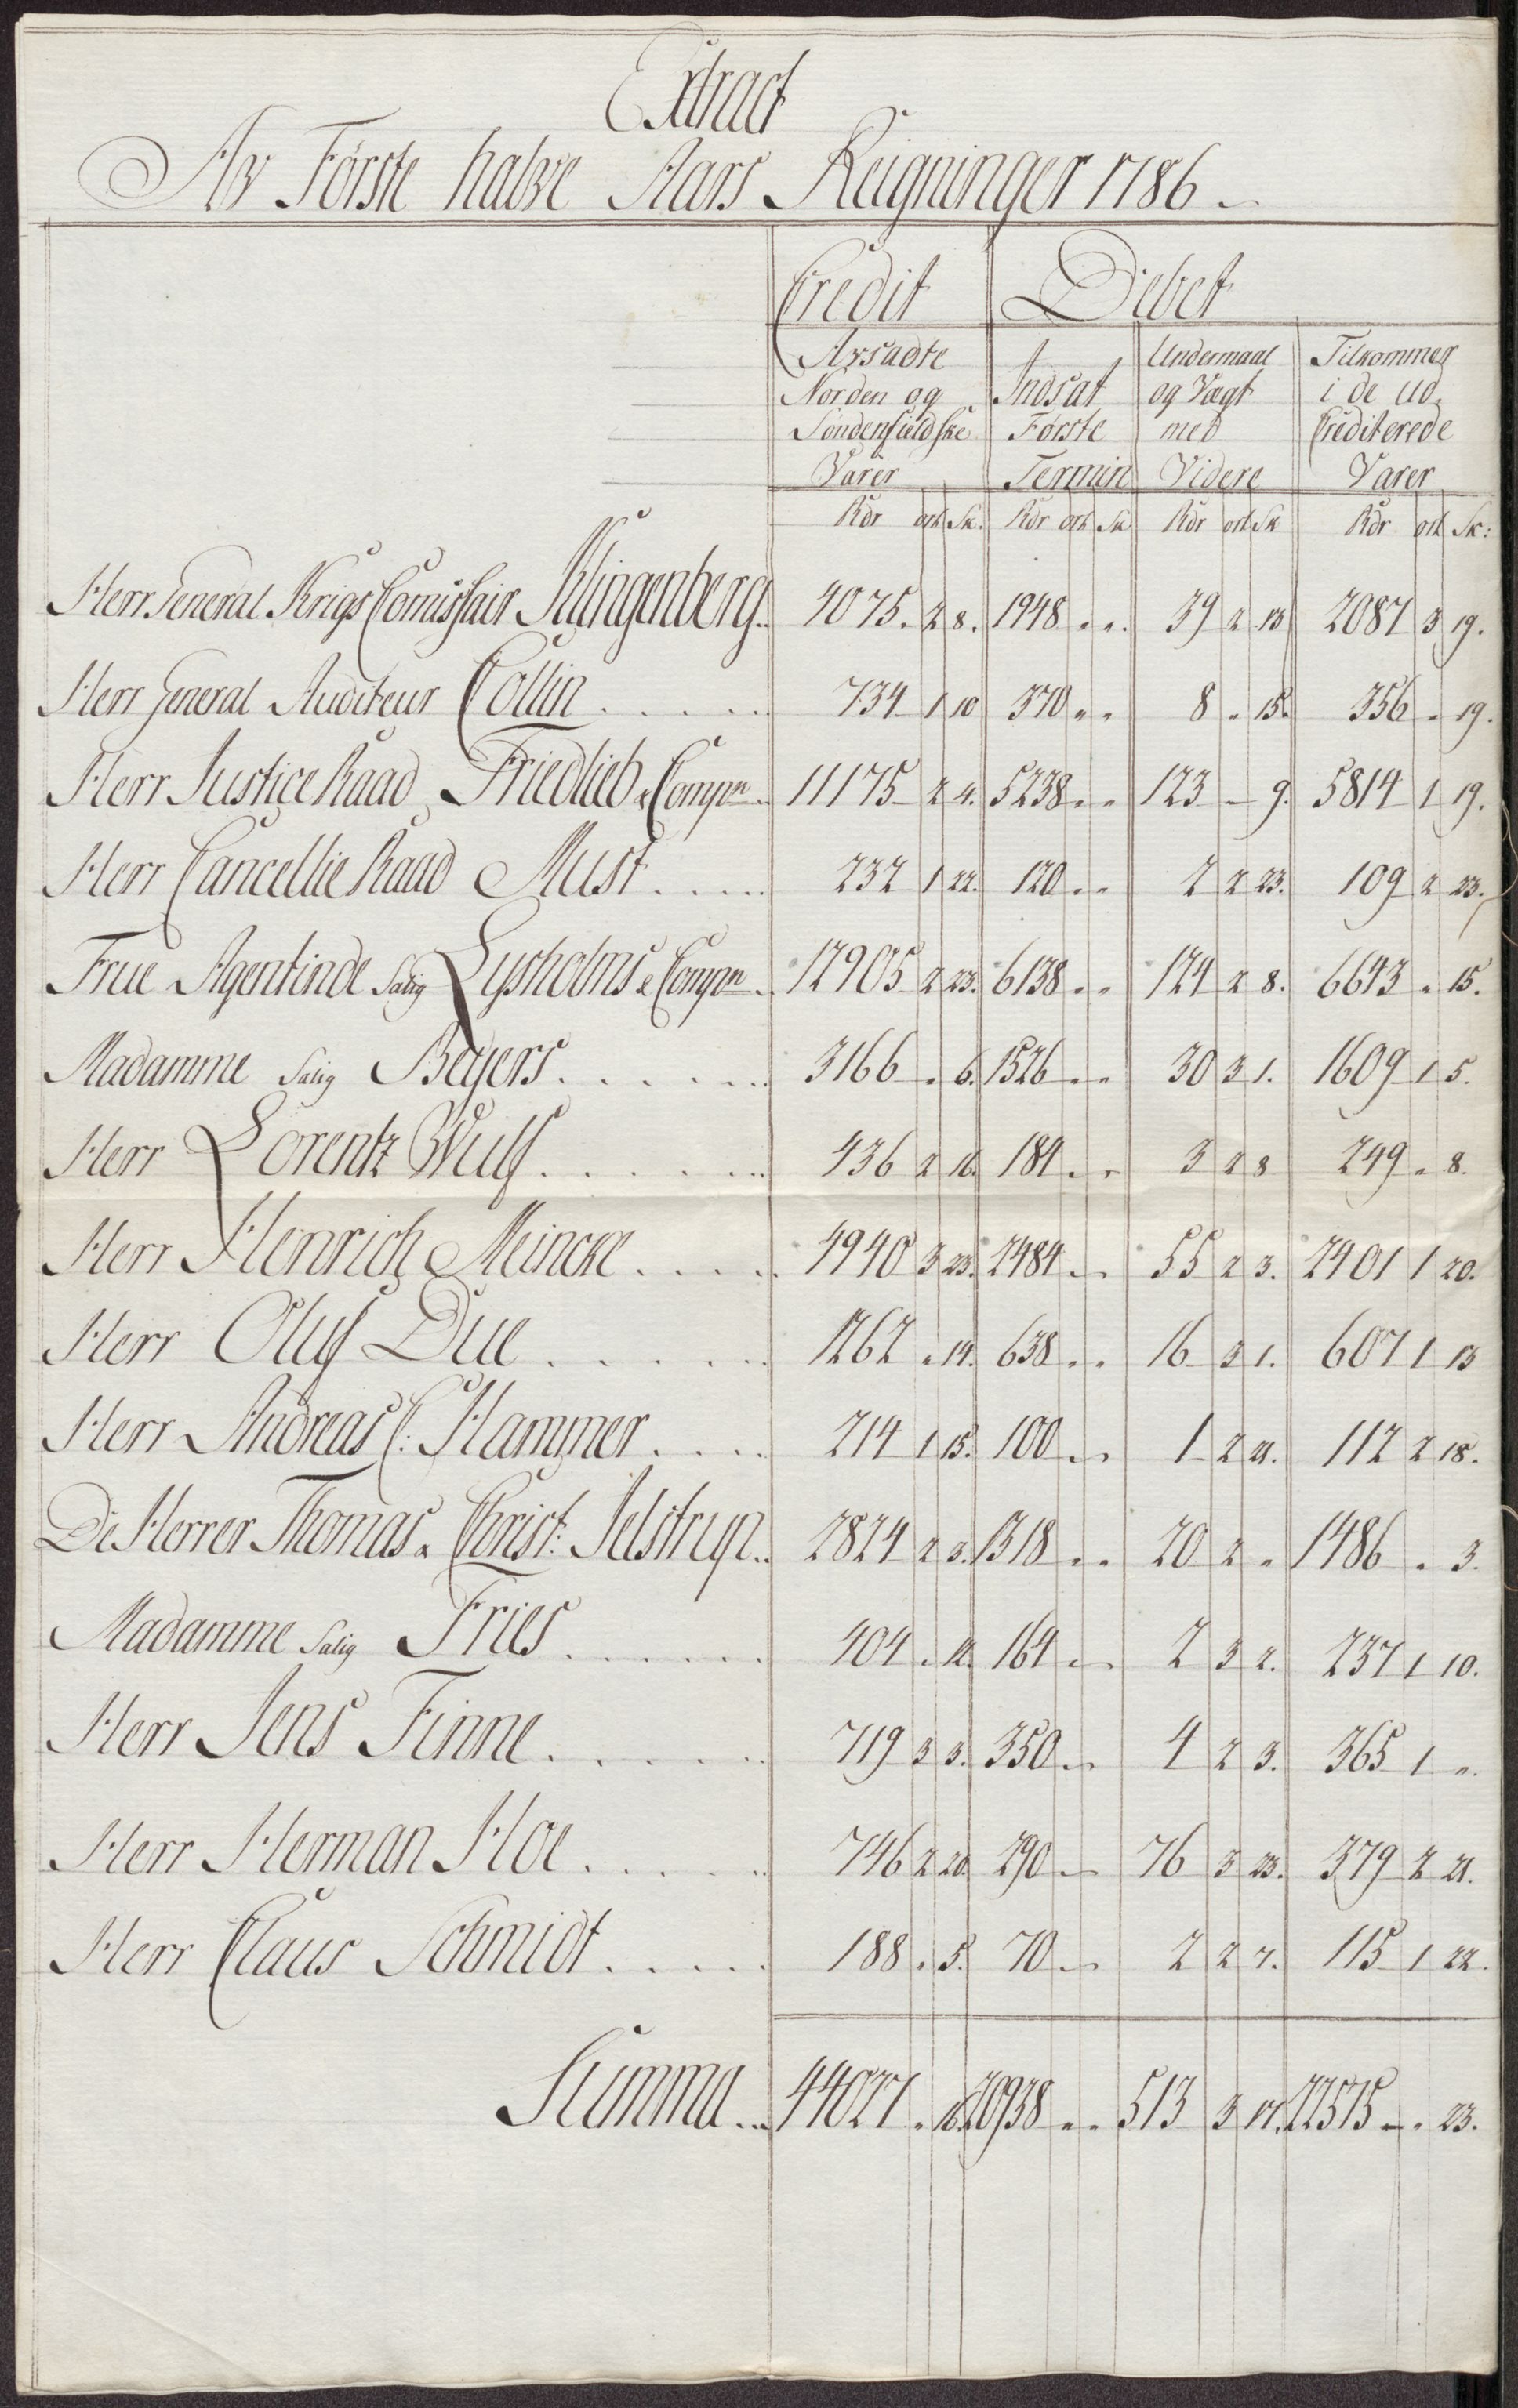 Extract
Av Første halve Aars Reigninger 1786
Credit Debet
Avsadte Undermaal Tilkommer
Norden og Indsat og Vægt i de ud
Søndenfieldske Første med Crediterede
Varer Termin Videre Varer
Rdr ort Sk. Rdr ort Sk Rdr ort Sk Rdr ort Sk:
Herr General Krigs Comissair Klingenberg.. 4075. 2 8. 1948 " " 39 2 13 2087 3 19.
Herr General Auditeur Collin . . . . . 734 1 10 370 " " 8 " 15. 356 " 19.
Herr Justice Raad Friedlieb & Compn.. 11175 2 4. 5238 " " 123 - 9. 5814 1 19.
Herr Cancellie Raad Must . . . . . 232 1 22. 120 " " 2 2 23. 109 2 23.
Frue Agentinde Salig Lysholms & Compn. 12905 2 23. 6138 " " 124 2 8. 6643 " 15.
Madamme Salig Beyers . . . . . . 3166 " 6. 1526 " " 30 3 1. 1609 1 5.
Herr Lorentz Wulf . . . . . . 436 2 16. 184 " " 3 2 8 249 " 8.
Herr Henrich Meincke . . . . . 4940 3 23. 2484 " " 55 2 3. 2401 1 20.
Herr Oluf Due . . . . . . 1262 " 14. 638 " " 16 3 1. 607 1 13
Herr Andreas C: Hammer . . . . 214 1 15. 100 " " 1 2 21. 112 2 18.
De Herrer Thomas & Christ: Jelstrup.. 2824 2 3. 1318 " " 20 2 " 1486 " 3.
Madamme Salig Fries . . . . . . 404 " 12. 164 " " 2 3 2. 237 1 10.
Herr Jens Finne . . . . . . 719 3 3. 350 " " 4 2 3. 365 1 ".
Herr Herman Hoe . . . . . 746 2 20. 290 " " 76 3 23. 379 2 21.
Herr Claus Schmidt . . . . . 188 " 5. 70 " " 2 2 7. 115 1 22.
Summa... 44027 " 16. 20938 " " 513 3 17. 22575 - " 23.